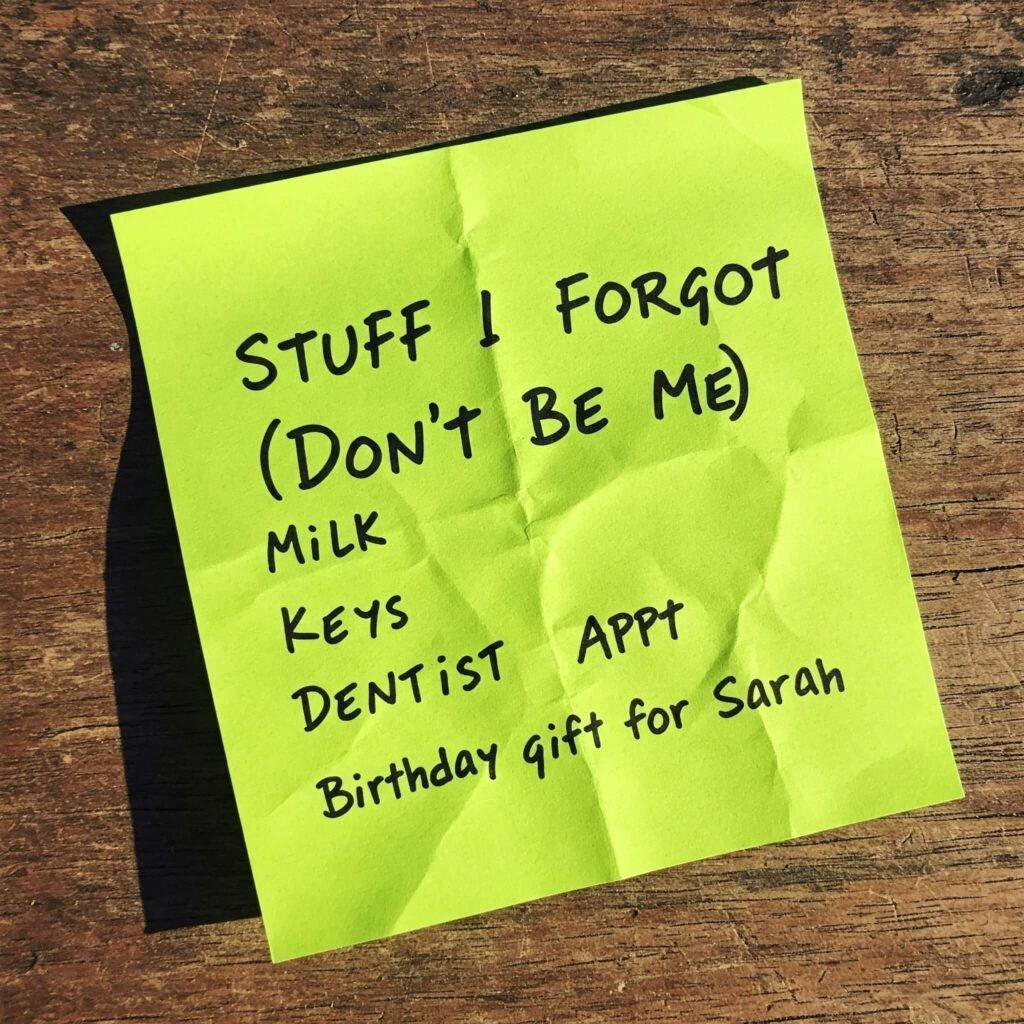 STUFF I FORGOT
(DON'T BE ME)
MiLK
KEYS
DENTiST APPt
Birthday gift for Sarah